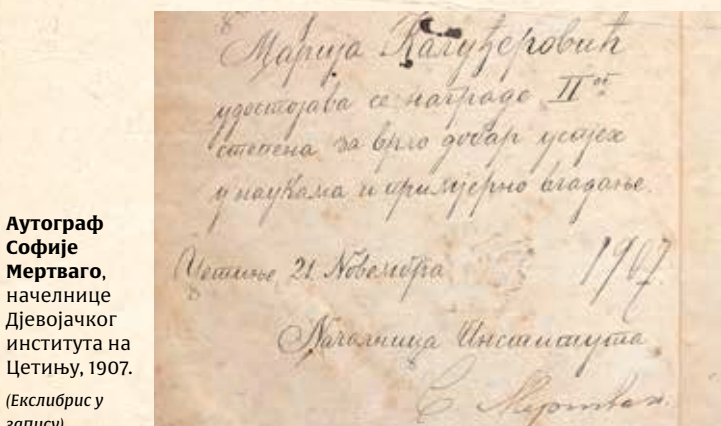 Аутограф
Софије
Мертваго,
начелнице
Дјевојачког
института на
Цетињу, 1907.
(Екслибрис у
запису)
Марија Калуђеровић
удостојава се награде II ог
степена за врло добар успјех
у наукама и примјерно владање.
Цетиње, 21 Новембра 1907.
Началница Института
С Мертваго